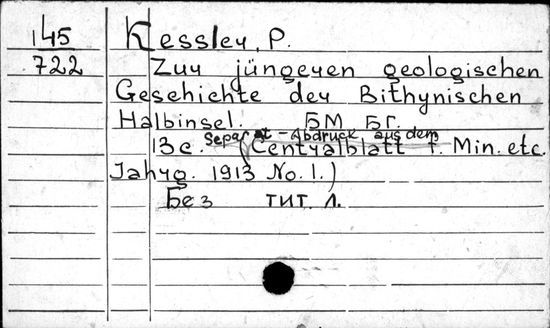 145
722
Kessler, P.
Zur jüngeren geologischen
Geschichte der Bithynischen
Halbinsel. БМ БГ.
13 с. Separat-Abdruck aus dem
(Centralblatt f. Min. etc.
Jahrg. 1913 No. 1.)
Без тит. л.